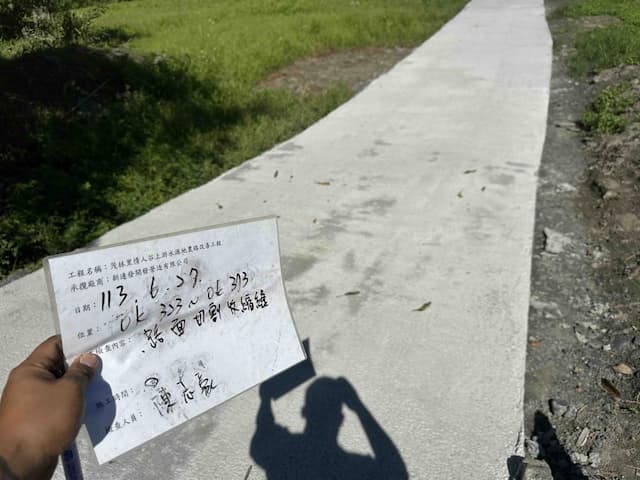 工程名稱：茂林里情人谷上游水源地農路改善工程
承攬廠商：新達發開發營造有限公司
日期：113. 6. 27.
位置：0k 353 ~ 0k 373
檢查內容：路面切割收縮縫
施工時間：
檢查人員：陳志